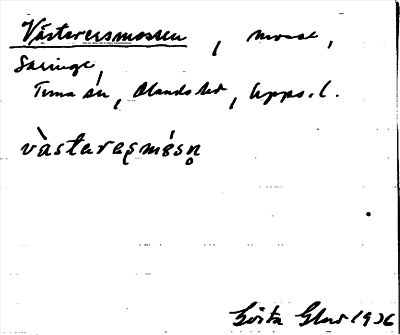 Västerersmossen, mosse,
Säringe,
Tuna sn, Olands hd, Upps. l.
vàsteresmósn
Gösta 1936